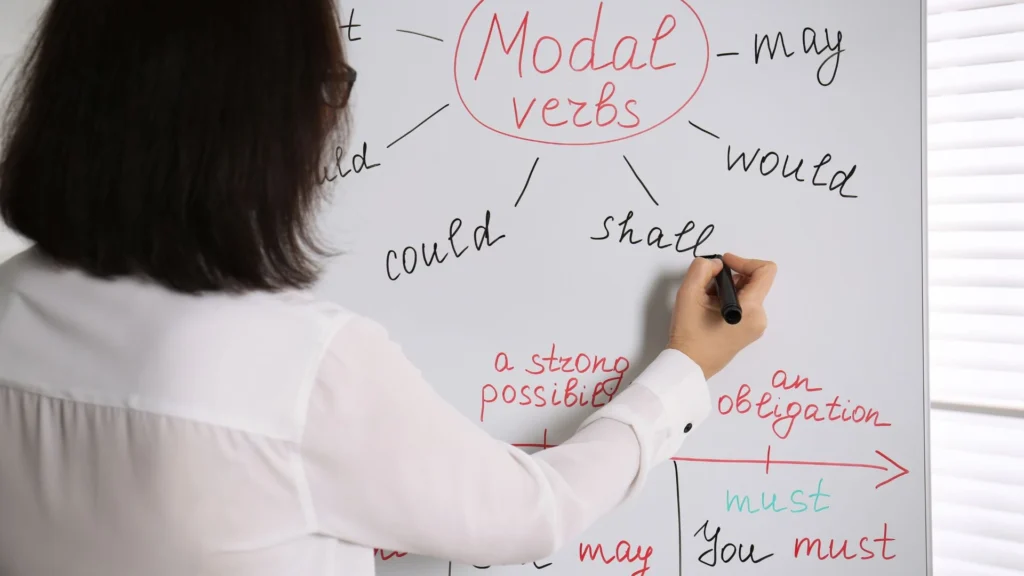 Modal
verbs
may
would
could
shall
a strong
an
obligation
must
may
You must